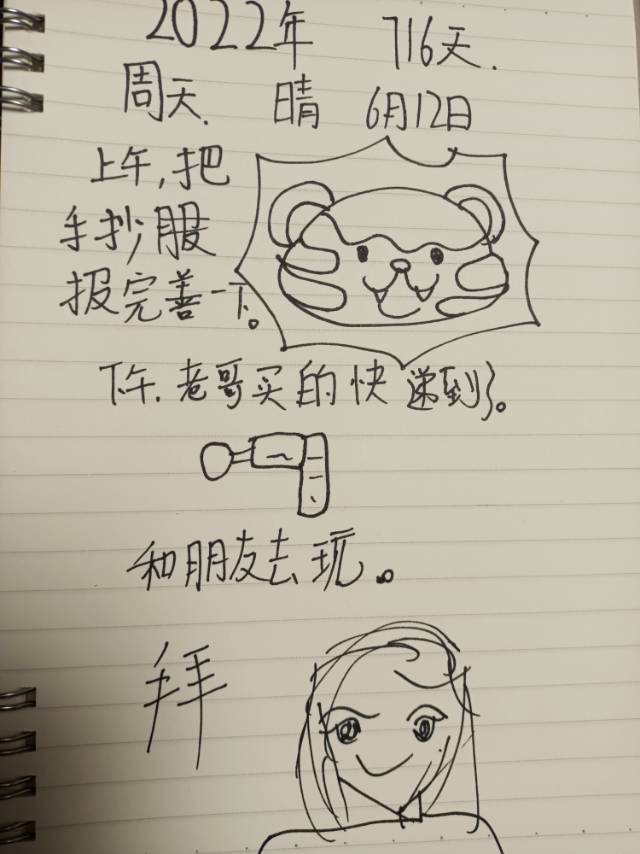 2022年 716天.
周天. 晴 6月12日
上午,把
手抄服
报完善一下。
下午.老哥买的快递到了。
和朋友去玩。
拜